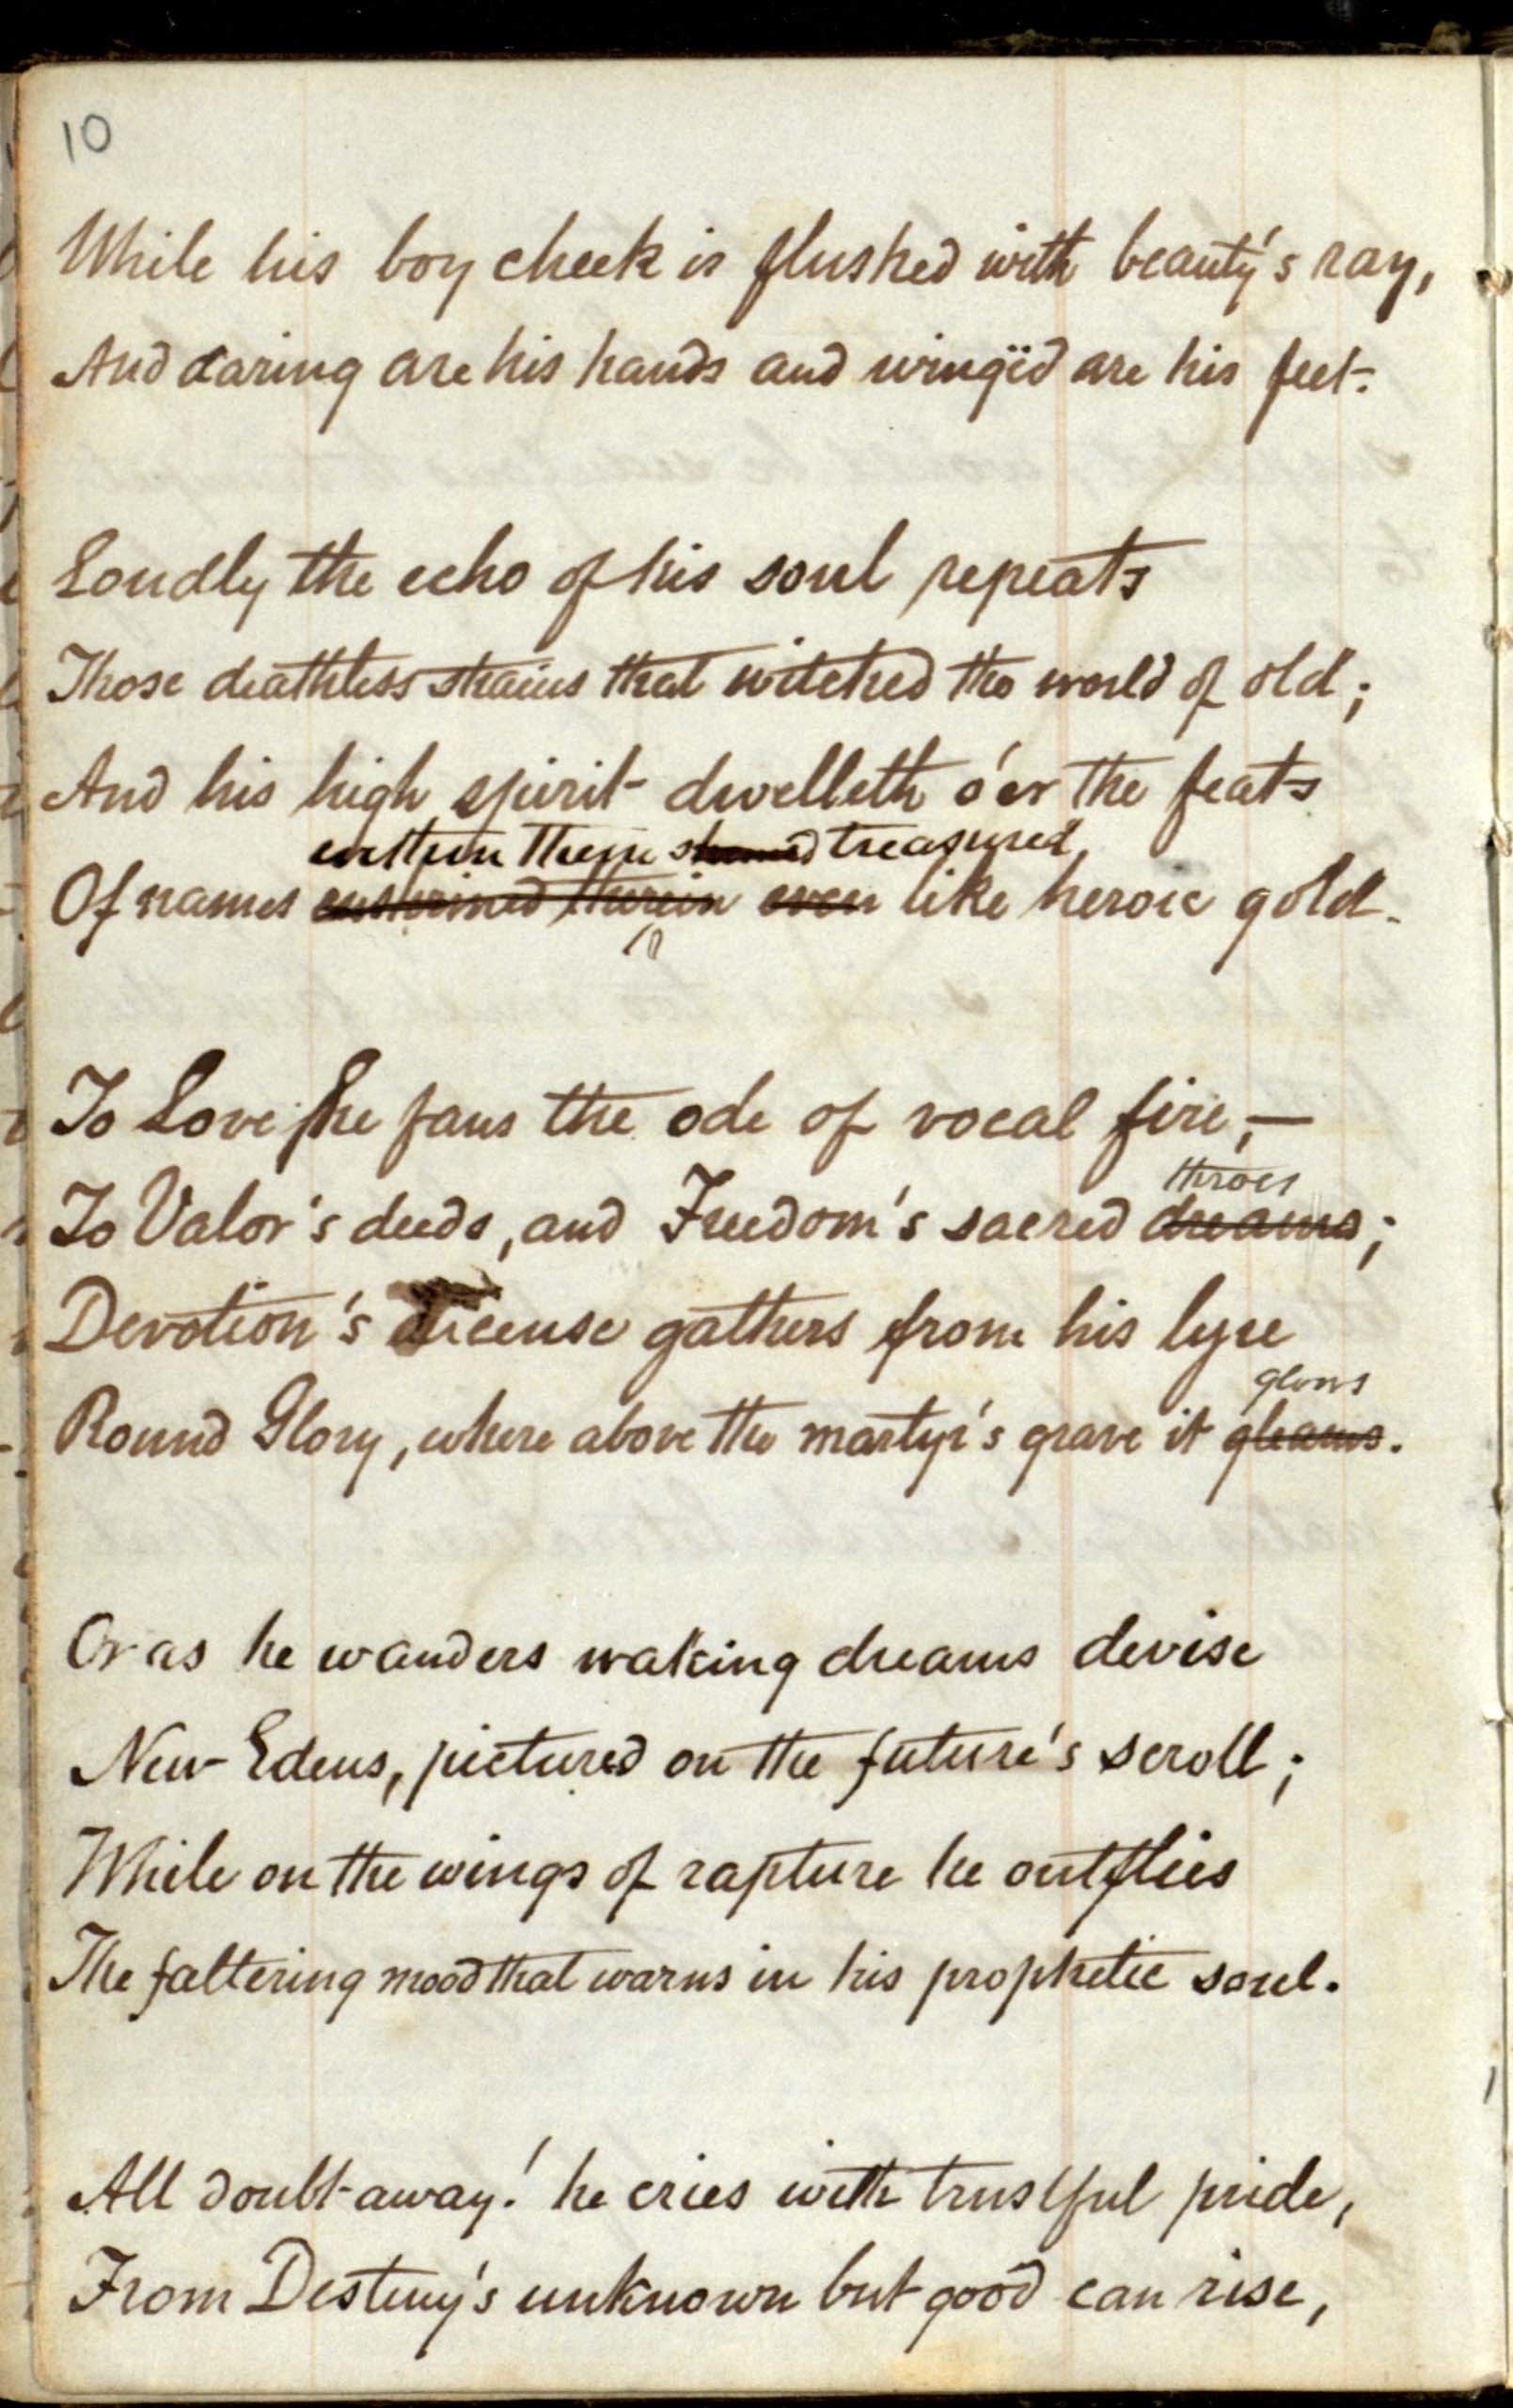 10
While his boy cheek is flushed with beauty's ray,
And daring are his hands and wingëd are his feet.
Loudly the echo of his soul repeats
Those deathless strains that witched the world of old;
And his high spirit dwelleth o'er the feats
within them treasured,
Of names enshrined therein even like heroic gold.
To Love he fans the ode of vocal fire,—
throes
To Valor's deeds, and Freedom's sacred dreams;
Devotion's incense gathers from his lyre
glows
Round Glory, where above the martyr's grave it gleams.
Or as he wanders waking dreams devise
New Edens, pictured on the future's scroll;
While on the wings of rapture he outflies
The faltering mood that warns in his prophetic soul.
All doubt away! he cries with trustful pride,
From Destiny's unknown but good can rise,